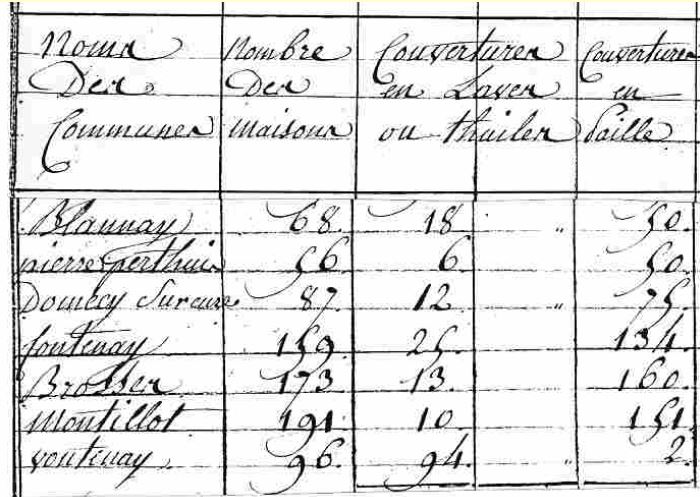 Noms Nombre Couvertures Couvertures
Des Des en Laves en
Communes maisons ou thuiles paille
Blannay 68. 18 " 50.
pierre perthuis 56 6. 50.
Domecy sur cure 87. 12 " 75.
fontenay 159. 25. 134.
Brosses 173 13. 160.
Montillot 191 10. 151.
voutenay 96. 94. " 2.